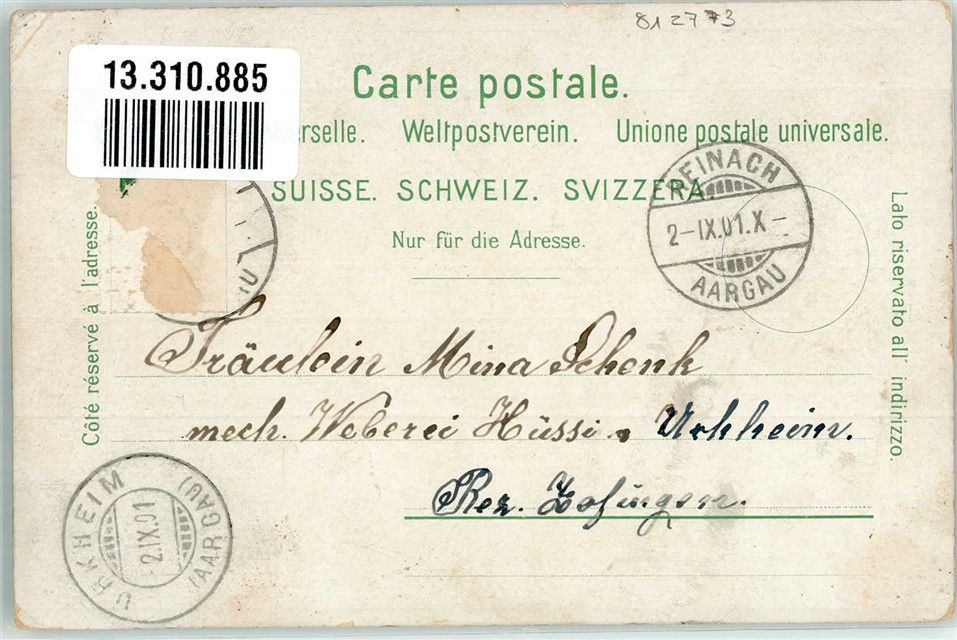 812773
13.310.885
Carte postale.
erselle. Weltpostverein. Unione postale universale.
SUISSE. SCHWEIZ. SVIZZERA.
Nur für die Adresse.
REINACH
2-IX.01.X-
AARGAU
Côté réservé à l'adresse.
Lalo riservato all' indirizzo.
Fräulein Mina Schenk
mech. Weberei Hüssi Urkheim.
Bez. Zofingen.
URKHEIM
2.IX.01
(AARGAU)